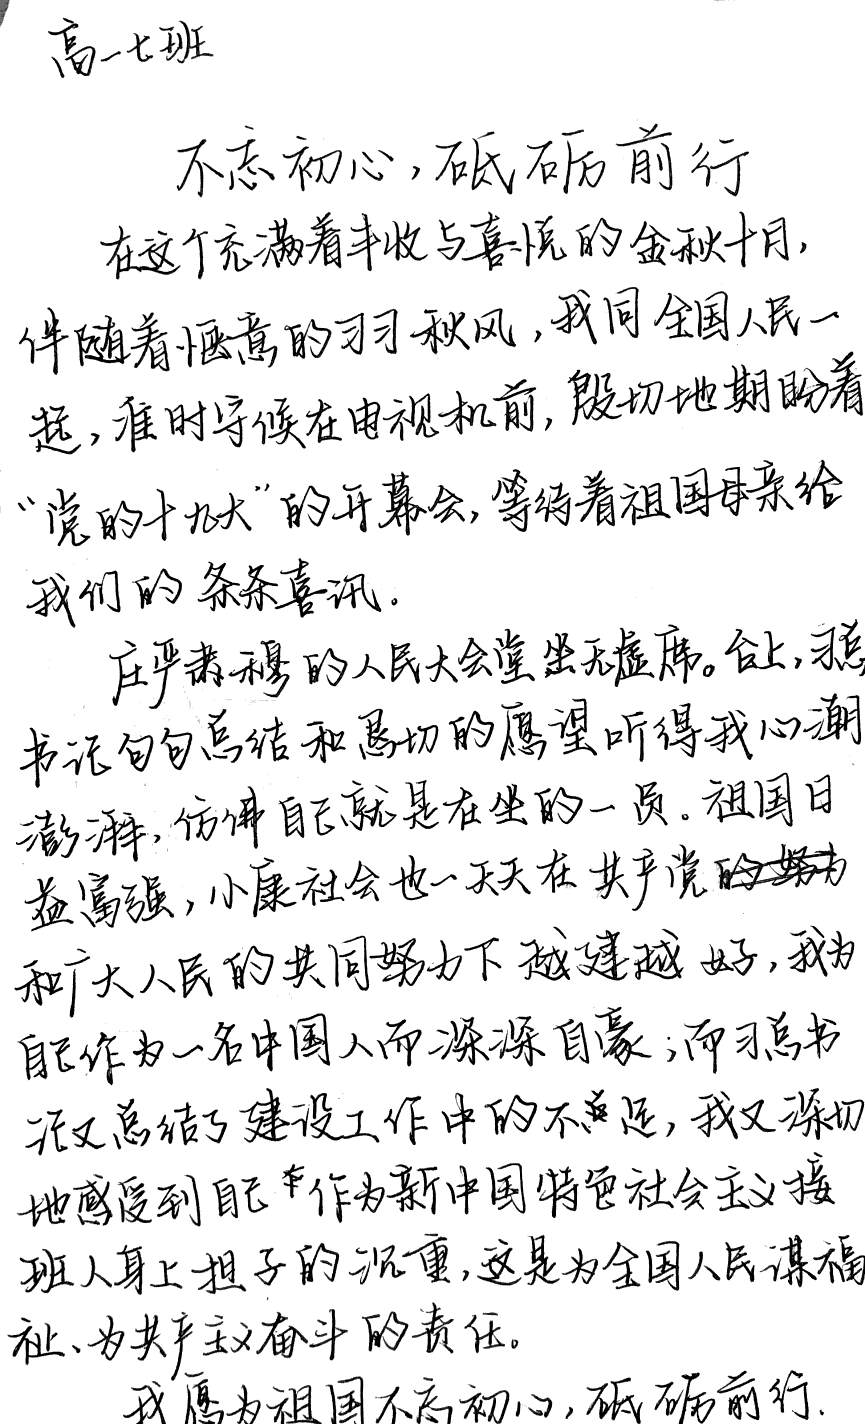 高一七班
不忘初心，砥砺前行
在这个充满着丰收与喜悦的金秋十月，
伴随着惬意的习习秋风，我同全国人民一
起，准时守候在电视机前，殷切地期盼着
“党的十九大”的开幕会，等待着祖国母亲给
我们的条条喜讯。
庄严肃穆的人民大会堂坐无虚席。台上，习总
书记句句总结和恳切的愿望听得我心潮
澎湃，仿佛自己就是在坐的一员。祖国日
益富强，小康社会也一天天在共产党
和广大人民的共同努力下越建越好，我为
自己作为一名中国人而深深自豪；而习总书
记又总结了建设工作中的不足，我又深切
地感受到自己作为新中国特色社会主义接
班人身上担子的沉重，这是为全国人民谋福
祉、为共产主义奋斗的责任。
我愿为祖国不忘初心，砥砺前行.